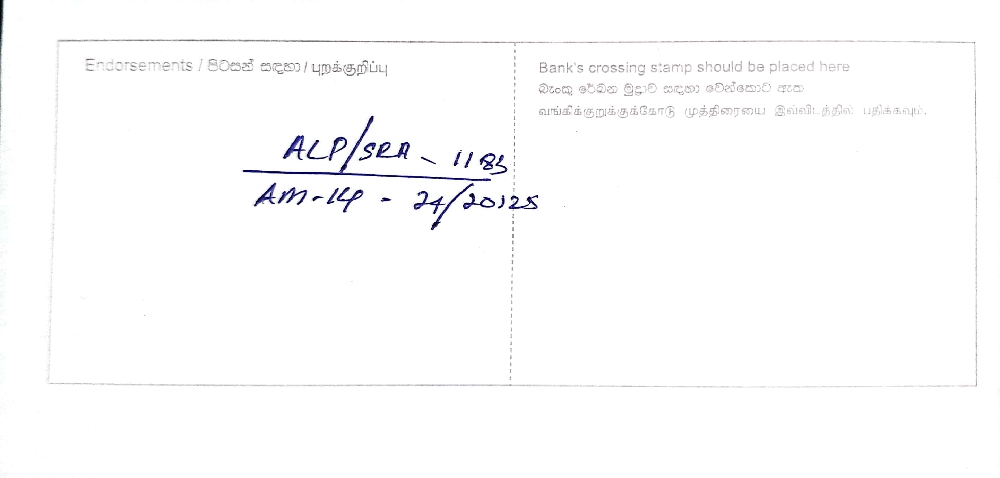 Endorsements / පිටසන් සඳහා / புறக்குறிப்பு
ALP/SRA - 1183
AM-14 - 24/20125
Bank's crossing stamp should be placed here
බැංකු රේඛන මුද්‍රාව සඳහා වෙන්කොට ඇත
வங்கிக்குறுக்குக்கோடு முத்திரையை இவ்விடத்தில் பதிக்கவும்.